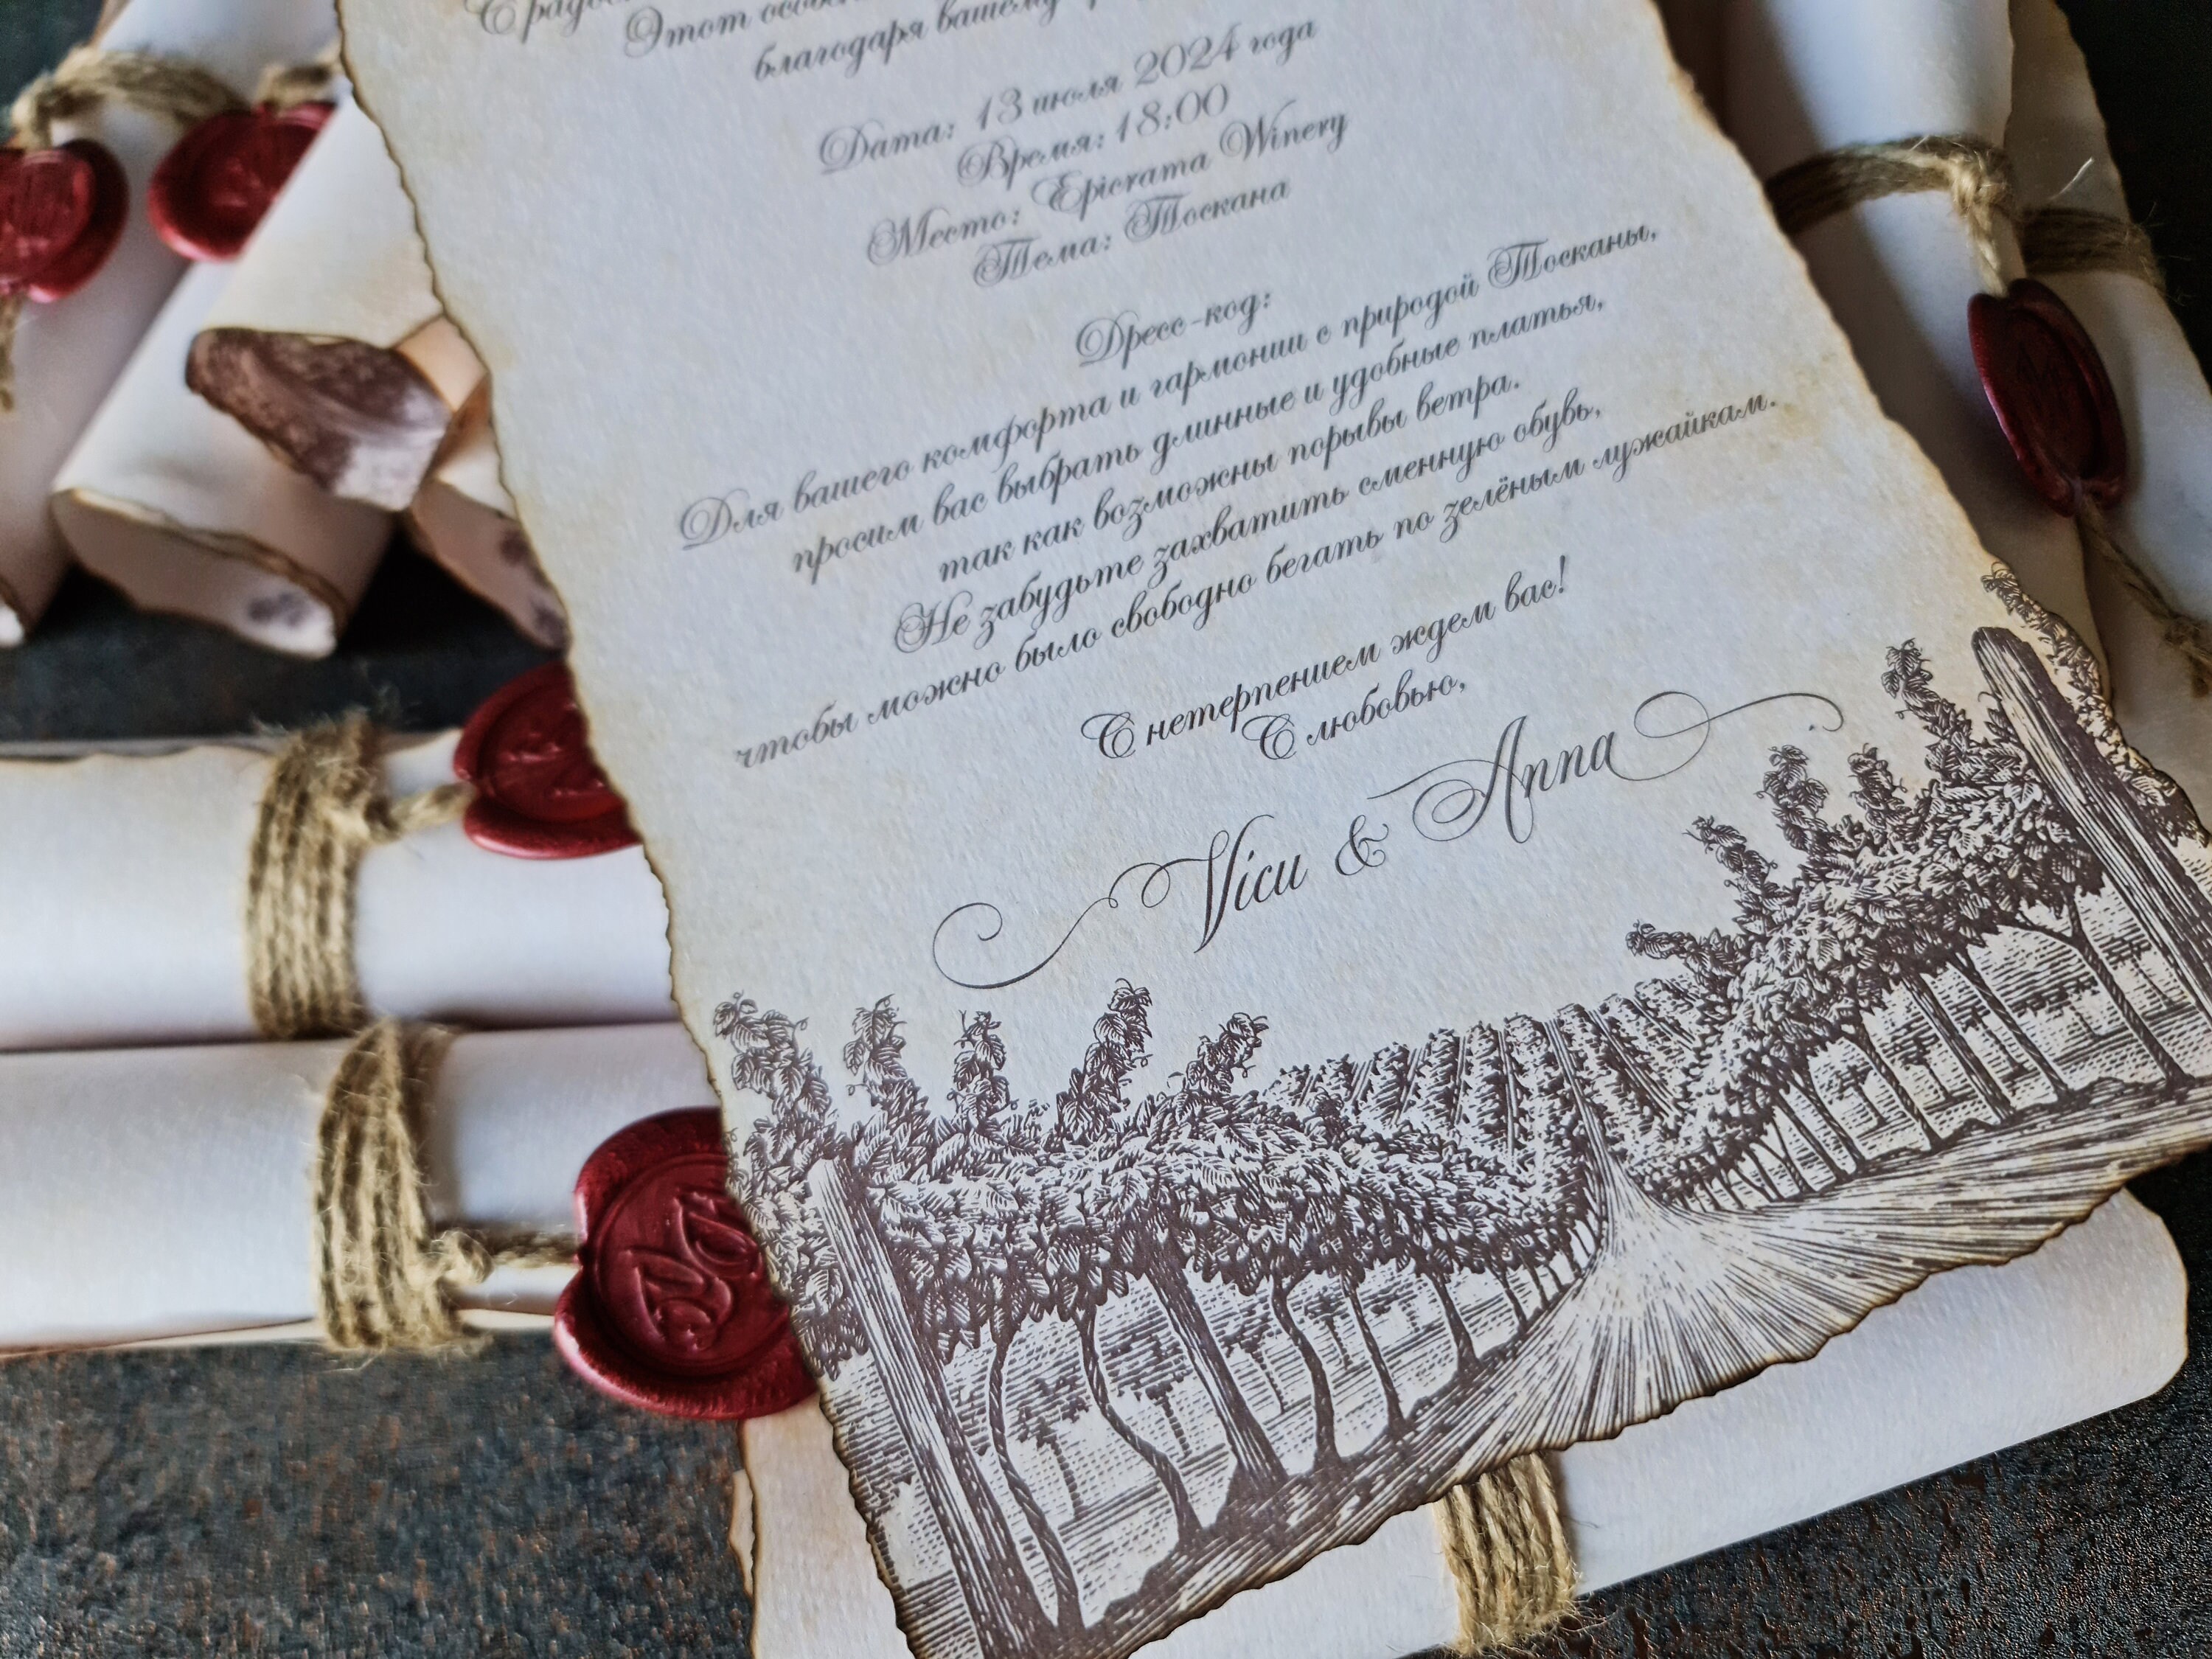 С
Этот
благодаря вашему
Дата: 13 июля 2024 года
Время: 18:00
Место: Epicrama Winery
Тема: Тоскана
Дресс-код:
Для вашего комфорта и гармонии с природой Тосканы,
просим вас выбрать длинные и удобные платья,
так как возможны порывы ветра.
Не забудьте захватить сменную обувь,
чтобы можно было свободно бегать по зелёным лужайкам.
С нетерпением ждем вас!
С любовью,
Vicu & Anna